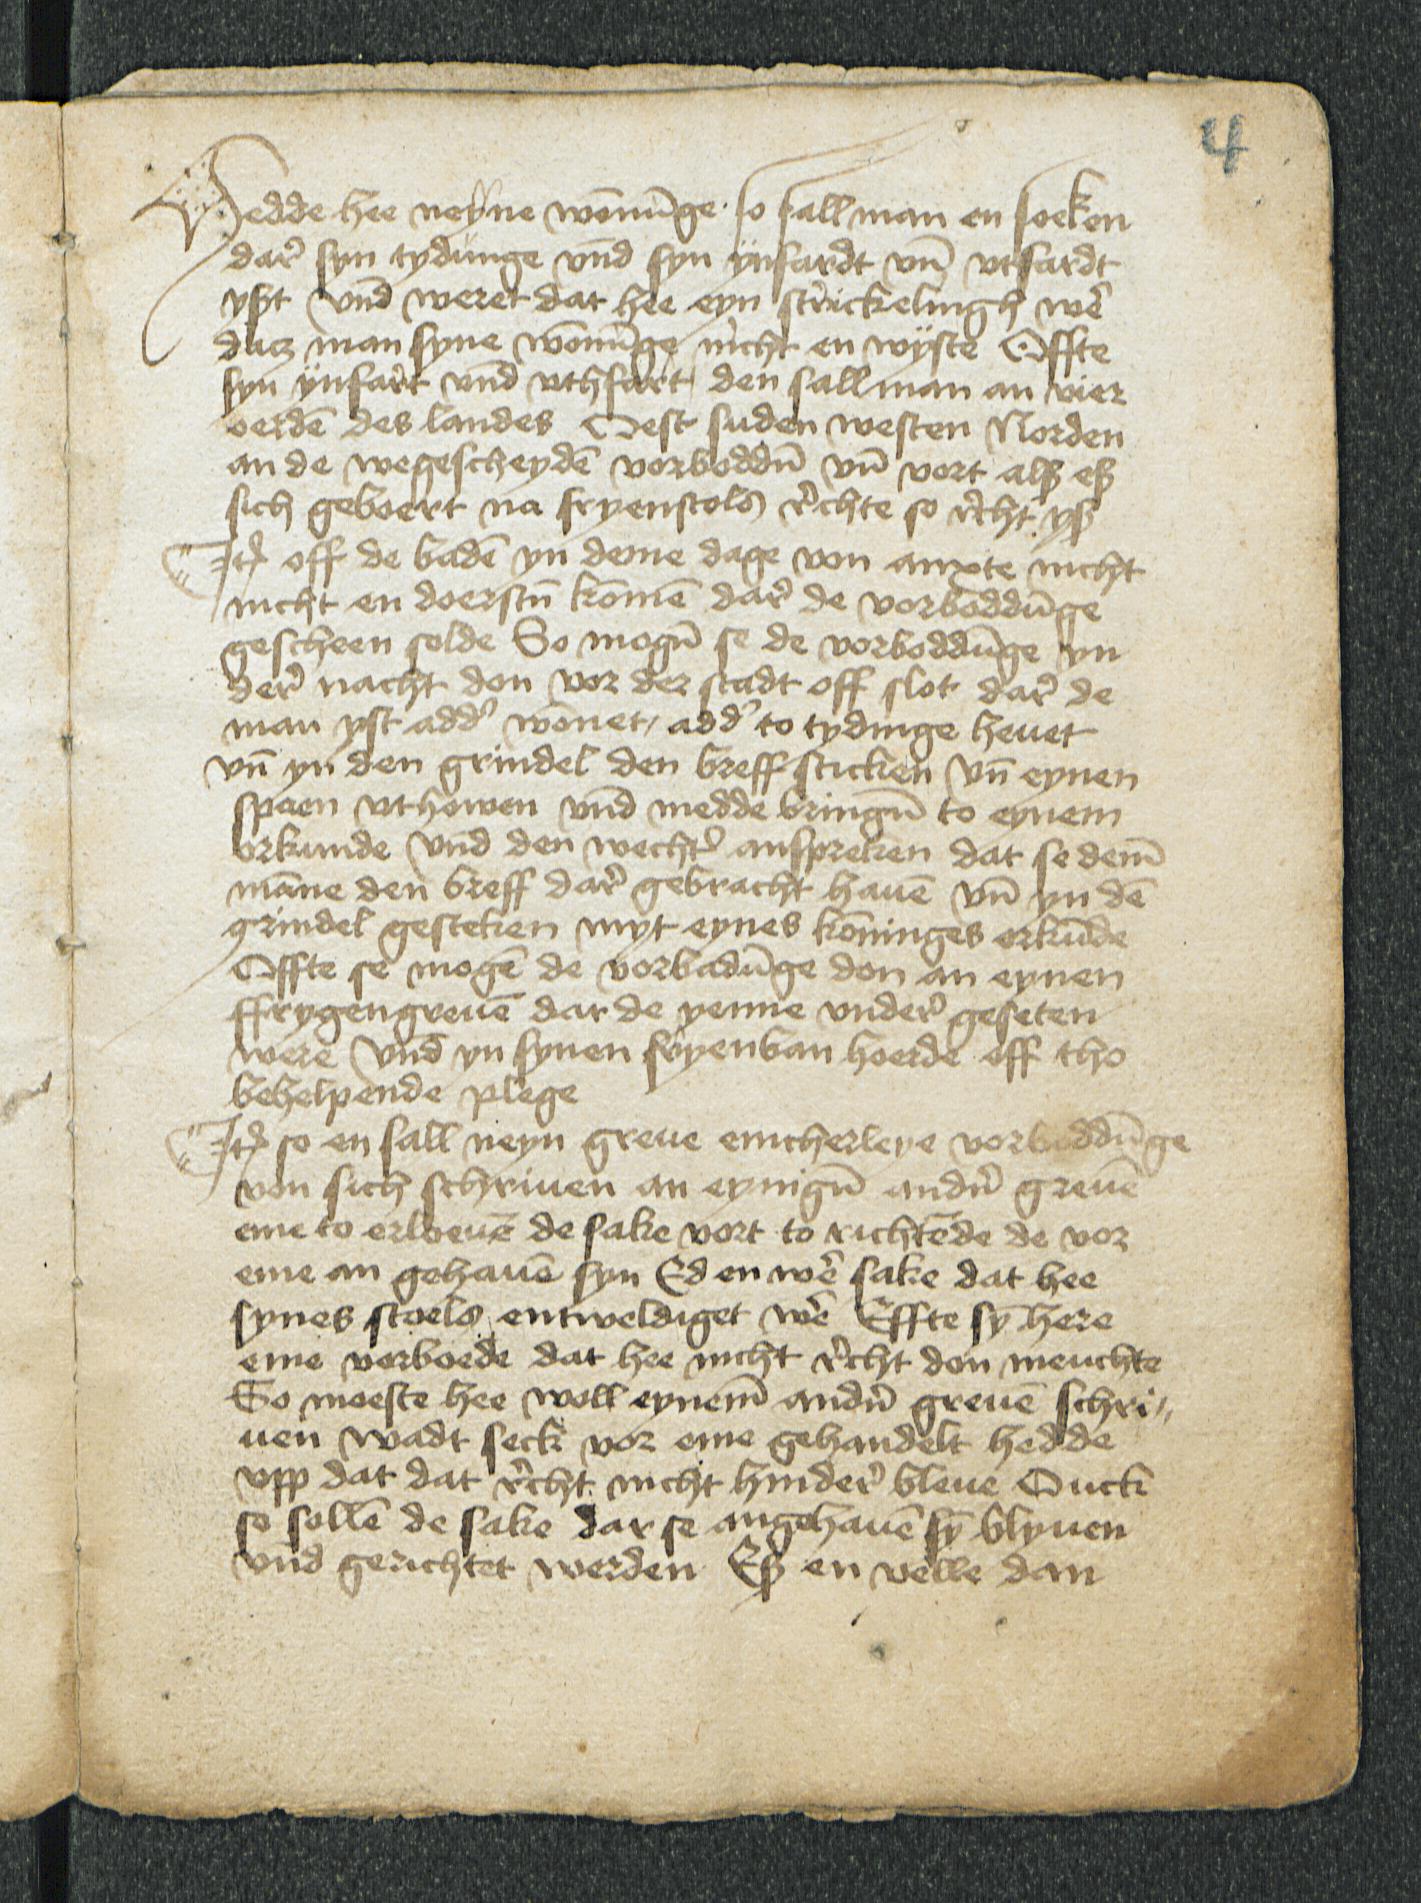 4
Hedde hee neyne wonūge so sall man en soeken
dar̉ syn tydunge vn̄d syn ynfardt vn̄ vtfardt
yßt vn̄d weret dat hee eyn strickelingh wer̉
datz man syne wonūge nicht en wyste Offte
syn ynfart vn̄d vthfart den sall man an vier
oerdē des landes Oest suden westen Norden
an de wegescheydē vorboddn̄ vn̄ vort alß eß
sich geboert na fryenstols r̉chte so r̉cht yß
Itꝫ off de badē yn deme dage von anxte nicht
nicht en doerstn̄ komē dar̉ de vorboddūge
gescheen solde So mogn̄ se de vorboddūge yn
der̉ nacht don vor der stadt off slot dar̉ de
man yst add̉ wonet, add̉ to tydinge heuet
vn̄ yn den grindel den breff sticken vn̄ eynen
spaen vthowen vn̄d medde bringn̄ to eynem
orkunde vn̄d den wecht̉ anspreken dat se dem̄
māne den breff dar̉ gebracht hauē vn̄ yn dē
grindel gesteken myt eynes koninges orkūde
Offte se mogē de vorbadūge don an eynen
ffrygengreuē dar de yenne vnder̉ geseten
were vn̄d yn synen fryenban hoerde off tho
behelpende plege
Itꝫ so en sall neyn greue emcherleye vorboddūge
von sich schriuen an eynign̄ andn̉ greuē
eme to erloeuē de sake vort to richtēde de vor
eme an gehauē syn Ed en wer̉ sake dat hee
synes stoels entweldiget wer̉ Effte sȳ here
eme vorboede dat hee nicht r̉cht don meuchte
So moeste hee woll eynem̄ andn̉ greuē schri,,
uen wadt seck vor eme gehandelt hedde
vpp dat dat r̉cht nicht hinder̉ bleue Ouck
so sollē de sake dar se angehauē sȳ blyuen
vn̄d gerichtet werden Eß en velle dan